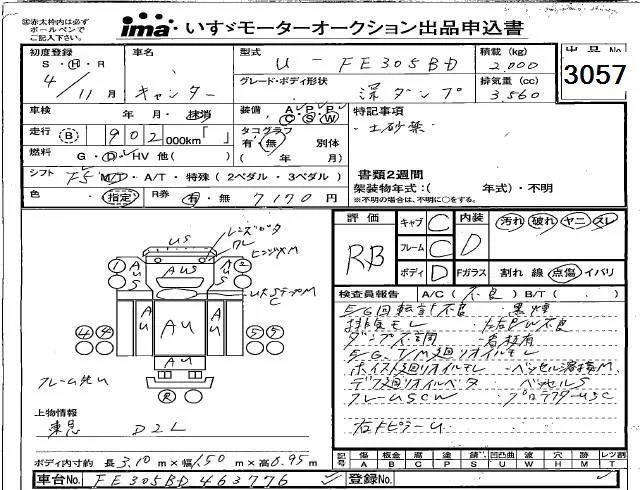 ※赤太枠内は必ず
ボールペンで
ご記入下さい。
ima いすゞモーターオークション出品申込書
初度登録 S・H・R 4/11月
車名 キャンター
型式 U-FE305BD
グレード・ボディ形状 深ダンプ
積載 (kg) 2,000
排気量 (cc) 3,560
出品No
3057
車検 年 月・抹消
走行 B 902 000km「 」
燃料 G・D・HV 他( )
シフト F5 M/T・A/T・特殊(2ペダル・3ペダル)
色 指定 R券 有・無 7170円
装備 A P P C S W
タコグラフ 有・無 別体
( 年 月)
特記事項
・土砂禁
書類2週間
架装物年式:( 年式)・不明
※不明の場合は、不明に○をする。
評価 RB
キャブ C
フレーム C
ボディ D
内装 D
汚れ 破れ ヤニ スレ
Fガラス 割れ 線 点傷 イバリ
検査員報告 A/C(不良) B/T( )
E/G回転計不良 ・黒煙
排気モレ ・左右P/W不良
・看板有
E/G、T/M廻リオイルモレ
ホイスト廻リオイルモレ ・ベッセル溶接M
デフ廻リオイルベタ ・ベッセルS
フレームSCW
右ドピラーU
レンズワレ
US
AUS
AU
AU
AU
AU
1
2
4 4
5 5
R
フレーム地U
上物情報
東急 D2L
ボディ内寸約 長3.10m×幅1.50m×高0.95m
記号 傷A 板金B 腐C 塗P 錆S 凹凸曲U ワレW 穴H 跡M レツ割T
車台No. FE305BD463776 登録No.